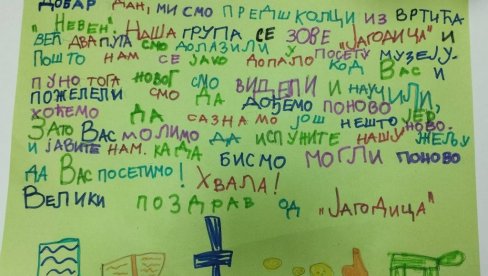 ДОБАР ДАН, МИ СМО ПРЕДШКОЛЦИ ИЗ ВРТИЋА
"НЕВЕН". НАША ГРУПА СЕ ЗОВЕ „ЈАГОДИЦА" И
ВЕЋ ДВА ПУТА СМО ДОЛАЗИЛИ У ПОСЕТУ МУЗЕЈУ.
ПОШТО НАМ СЕ ЈАКО ДОПАЛО КОД ВАС И
ПУНО ТОГА НОВОГ СМО ВИДЕЛИ И НАУЧИЛИ,
ПОЖЕЛЕЛИ СМО ДА ДОЂЕМО ПОНОВО ЈЕР
ХОЋЕМО ДА САЗНАМО ЈОШ НЕШТО НОВО.
ЗАТО ВАС МОЛИМО ДА ИСПУНИТЕ НАШУ ЖЕЉУ
И ЈАВИТЕ НАМ КАДА БИСМО МОГЛИ ПОНОВО
ДА ВАС ПОСЕТИМО! ХВАЛА!
ВЕЛИКИ ПОЗДРАВ ОД „ЈАГОДИЦА"